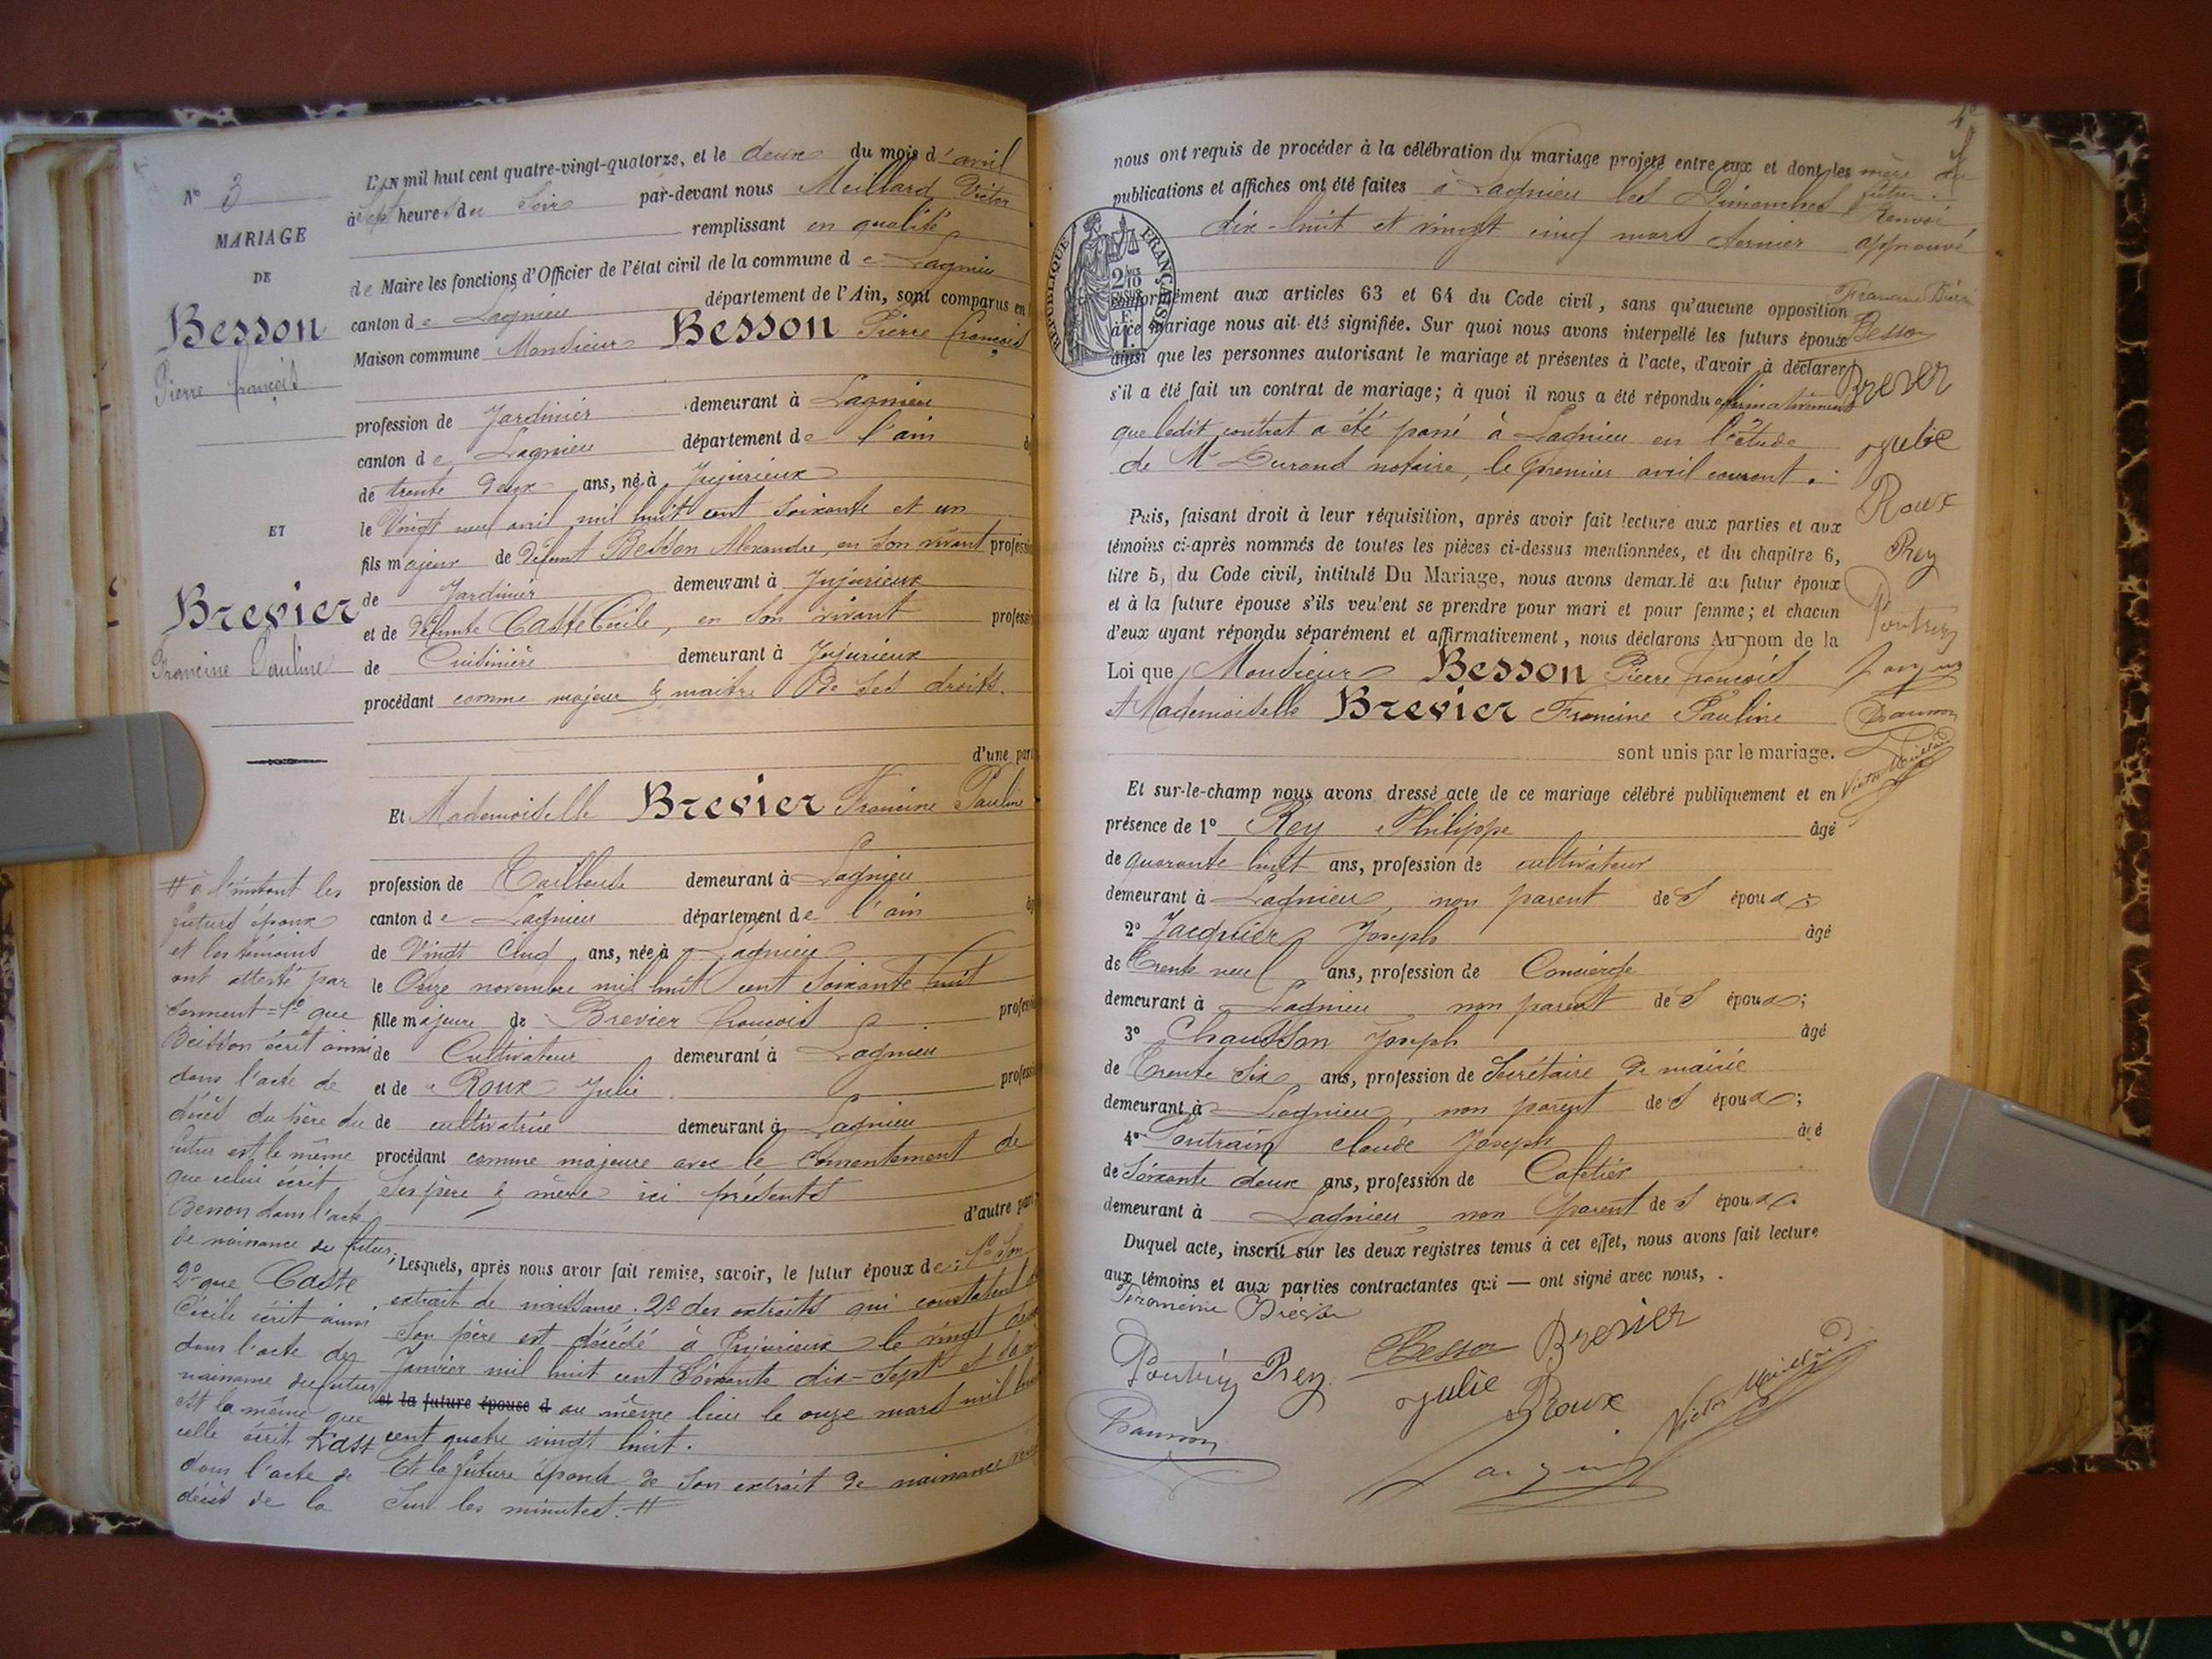 N° 3
MARIAGE
DE
Besson
Pierre françois
ET
Brevier
Francine Pauline
L'AN mil huit cent quatre-vingt-quatorze, et le deux du mois d'avril
à Sept heures du Soir par-devant nous Meillard Victor
remplissant en qualité
de Maire les fonctions d'Officier de l'état civil de la commune de Lagnieu
canton de Lagnieu département de l'Ain, sont comparus en
Maison commune Monsieur Besson Pierre françois
profession de Jardinier demeurant à Lagnieu
canton de Lagnieu département de l'ain
de trente deux ans, né à Jujurieux
le Vingt neuf avril mil huit cent soixante et un
fils majeur de défunt Besson Alexandre, en son vivant professi
de Jardinier demeurant à Jujurieux
et de défunte Caste Cécile, en son vivant professi
de Cuisinière demeurant à Jujurieux
procédant comme majeur & maître de ses droits.
d'une part
Et Mademoiselle Brevier Francine Pauline
profession de Tailleuse demeurant à Lagnieu
canton de Lagnieu département de l'ain
de Vingt cinq ans, née à Lagnieu
le Onze novembre mil huit cent soixante huit
fille majeure de Brevier françois profess
de Cultivateur demeurant à Lagnieu
et de Roux Julie professi
de cultivatrice demeurant à Lagnieu
procédant comme majeure avec le consentement de
ses père & mère ici présents
d'autre part
Lesquels, après nous avoir fait remise, savoir, le futur époux de: 1° Son
extrait de naissance. 2° des extraits qui constatent
Son père est décédé à Jujurieux le vingt deux
Janvier mil huit cent Soixante dix-Sept et sa
et la future épouse d au même lieu le onze mars mil
cent quatre vingt huit.
Et la future épouse de son extrait de naissance
Sur les minutes. #
# à l'instant les
futurs époux
et les témoins
ont attesté par
serment = 1° que
Beisson écrit ainsi
dans l'acte de
décès du père du
futur est le même
que celui écrit
Besson dans l'acte
de naissance du futur.
2° que Caste
Cécile écrit ainsi
dans l'acte de
naissance du futur
est la même que
celle écrit Kast
dans l'acte de
décès de la
mère du
futur.
Renvoi
approuvé
Besson
Brevier
Julie
Roux
Rey
Poutrain
Victor Meillard
nous ont requis de procéder à la célébration du mariage projeté entre eux et dont les
publications et affiches ont été faites à Lagnieu les Dimanches
dix-huit et vingt cinq mars dernier
RÉPUBLIQUE FRANÇAISE
conformément aux articles 63 et 64 du Code civil, sans qu'aucune opposition
à ce mariage nous ait été signifiée. Sur quoi nous avons interpellé les futurs époux
ainsi que les personnes autorisant le mariage et présentes à l'acte, d'avoir à déclarer
s'il a été fait un contrat de mariage; à quoi il nous a été répondu affirmativement
que ledit contrat a été passé à Lagnieu en l'étude
de Me Durand notaire, le premier avril courant.
Puis, faisant droit à leur réquisition, après avoir fait lecture aux parties et aux
témoins ci-après nommés de toutes les pièces ci-dessus mentionnées, et du chapitre 6,
titre 5, du Code civil, intitulé Du Mariage, nous avons demandé au futur époux
et à la future épouse s'ils veulent se prendre pour mari et pour femme; et chacun
d'eux ayant répondu séparément et affirmativement, nous déclarons Au nom de la
Loi que Monsieur Besson Pierre françois
et Mademoiselle Brevier Francine Pauline
sont unis par le mariage.
Et sur-le-champ nous avons dressé acte de ce mariage célébré publiquement et en
présence de 1° Rey Philippe âgé
de quarante huit ans, profession de cultivateur
demeurant à Lagnieu, non parent des époux;
2° Jacquier Joseph âgé
de Trente neuf ans, profession de Concierge
demeurant à Lagnieu non parent des époux;
3° Chausson Joseph âgé
de Trente Six ans, profession de Secrétaire de mairie
demeurant à Lagnieu, non parent des époux;
4° Poutrain claude Joseph âgé
de Soixante deux ans, profession de Cafetier
demeurant à Lagnieu, non parent des époux.
Duquel acte, inscrit sur les deux registres tenus à cet effet, nous avons fait lecture
aux témoins et aux parties contractantes qui — ont signé avec nous, .
Besson Brevier
Rey Julie Roux Victor Meillard